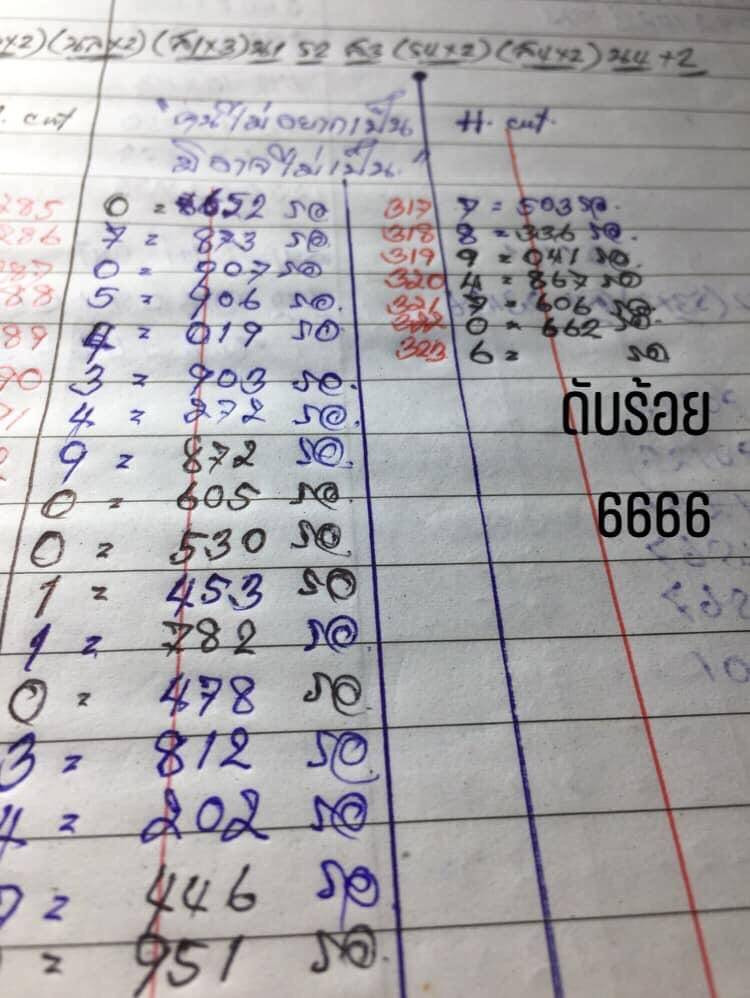 ×2) (×2) (×3) 52 (54×2) (×2) +2
cut
"คนไม่อยากเป็น
มีอาจไม่เป็น"
285 0 = 8652 รอ
286 7 = 873 รอ
287 0 = 907 รอ
288 5 = 906 รอ
289 4 = 019 รอ
90 3 = 903 รอ
91 4 = 272 รอ
9 = 872 รอ
0 = 605 รอ
0 = 530 รอ
1 = 453 รอ
1 = 782 รอ
0 = 478 รอ
3 = 812 รอ
4 = 202 รอ
= 446 รอ
= 951 รอ
H. cut.
317 7 = 503 รอ.
318 8 = 336 รอ.
319 9 = 041 รอ
320 4 = 867 รอ
321 7 = 606 รอ
322 0 = 662 รอ.
323 6 = รอ
ดับร้อย
6666